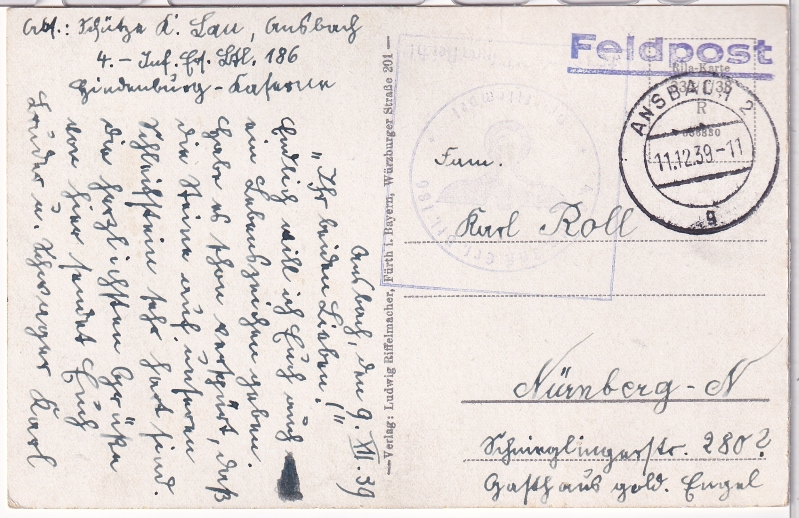 Abs.: Schütze K. Lau, Ansbach
4. - Inf. Ers. Btl. 186
Hindenburg-Kaserne
Ansbach, den 9. XII. 39
"Ihr beiden Lieben!"
Endlich will ich Euch auch
ein Lebenszeichen geben.
Habe es schon verspürt, daß
die Steine auf unserem
Schleifstein sehr hart sind.
Die herzlichsten Grüße
von hier sendet Euch
Bruder u. Schwager Karl
—Verlag: Ludwig Riffelmacher, Fürth i. Bayern, Würzburger Straße 201—
Feldpost
Rila-Karte
R
ANSBACH 2
11.12.39-11
g
Fam.
Karl Roll
Nürnberg-N
Schnieglingerstr. 280
Gasthaus gold. Engel